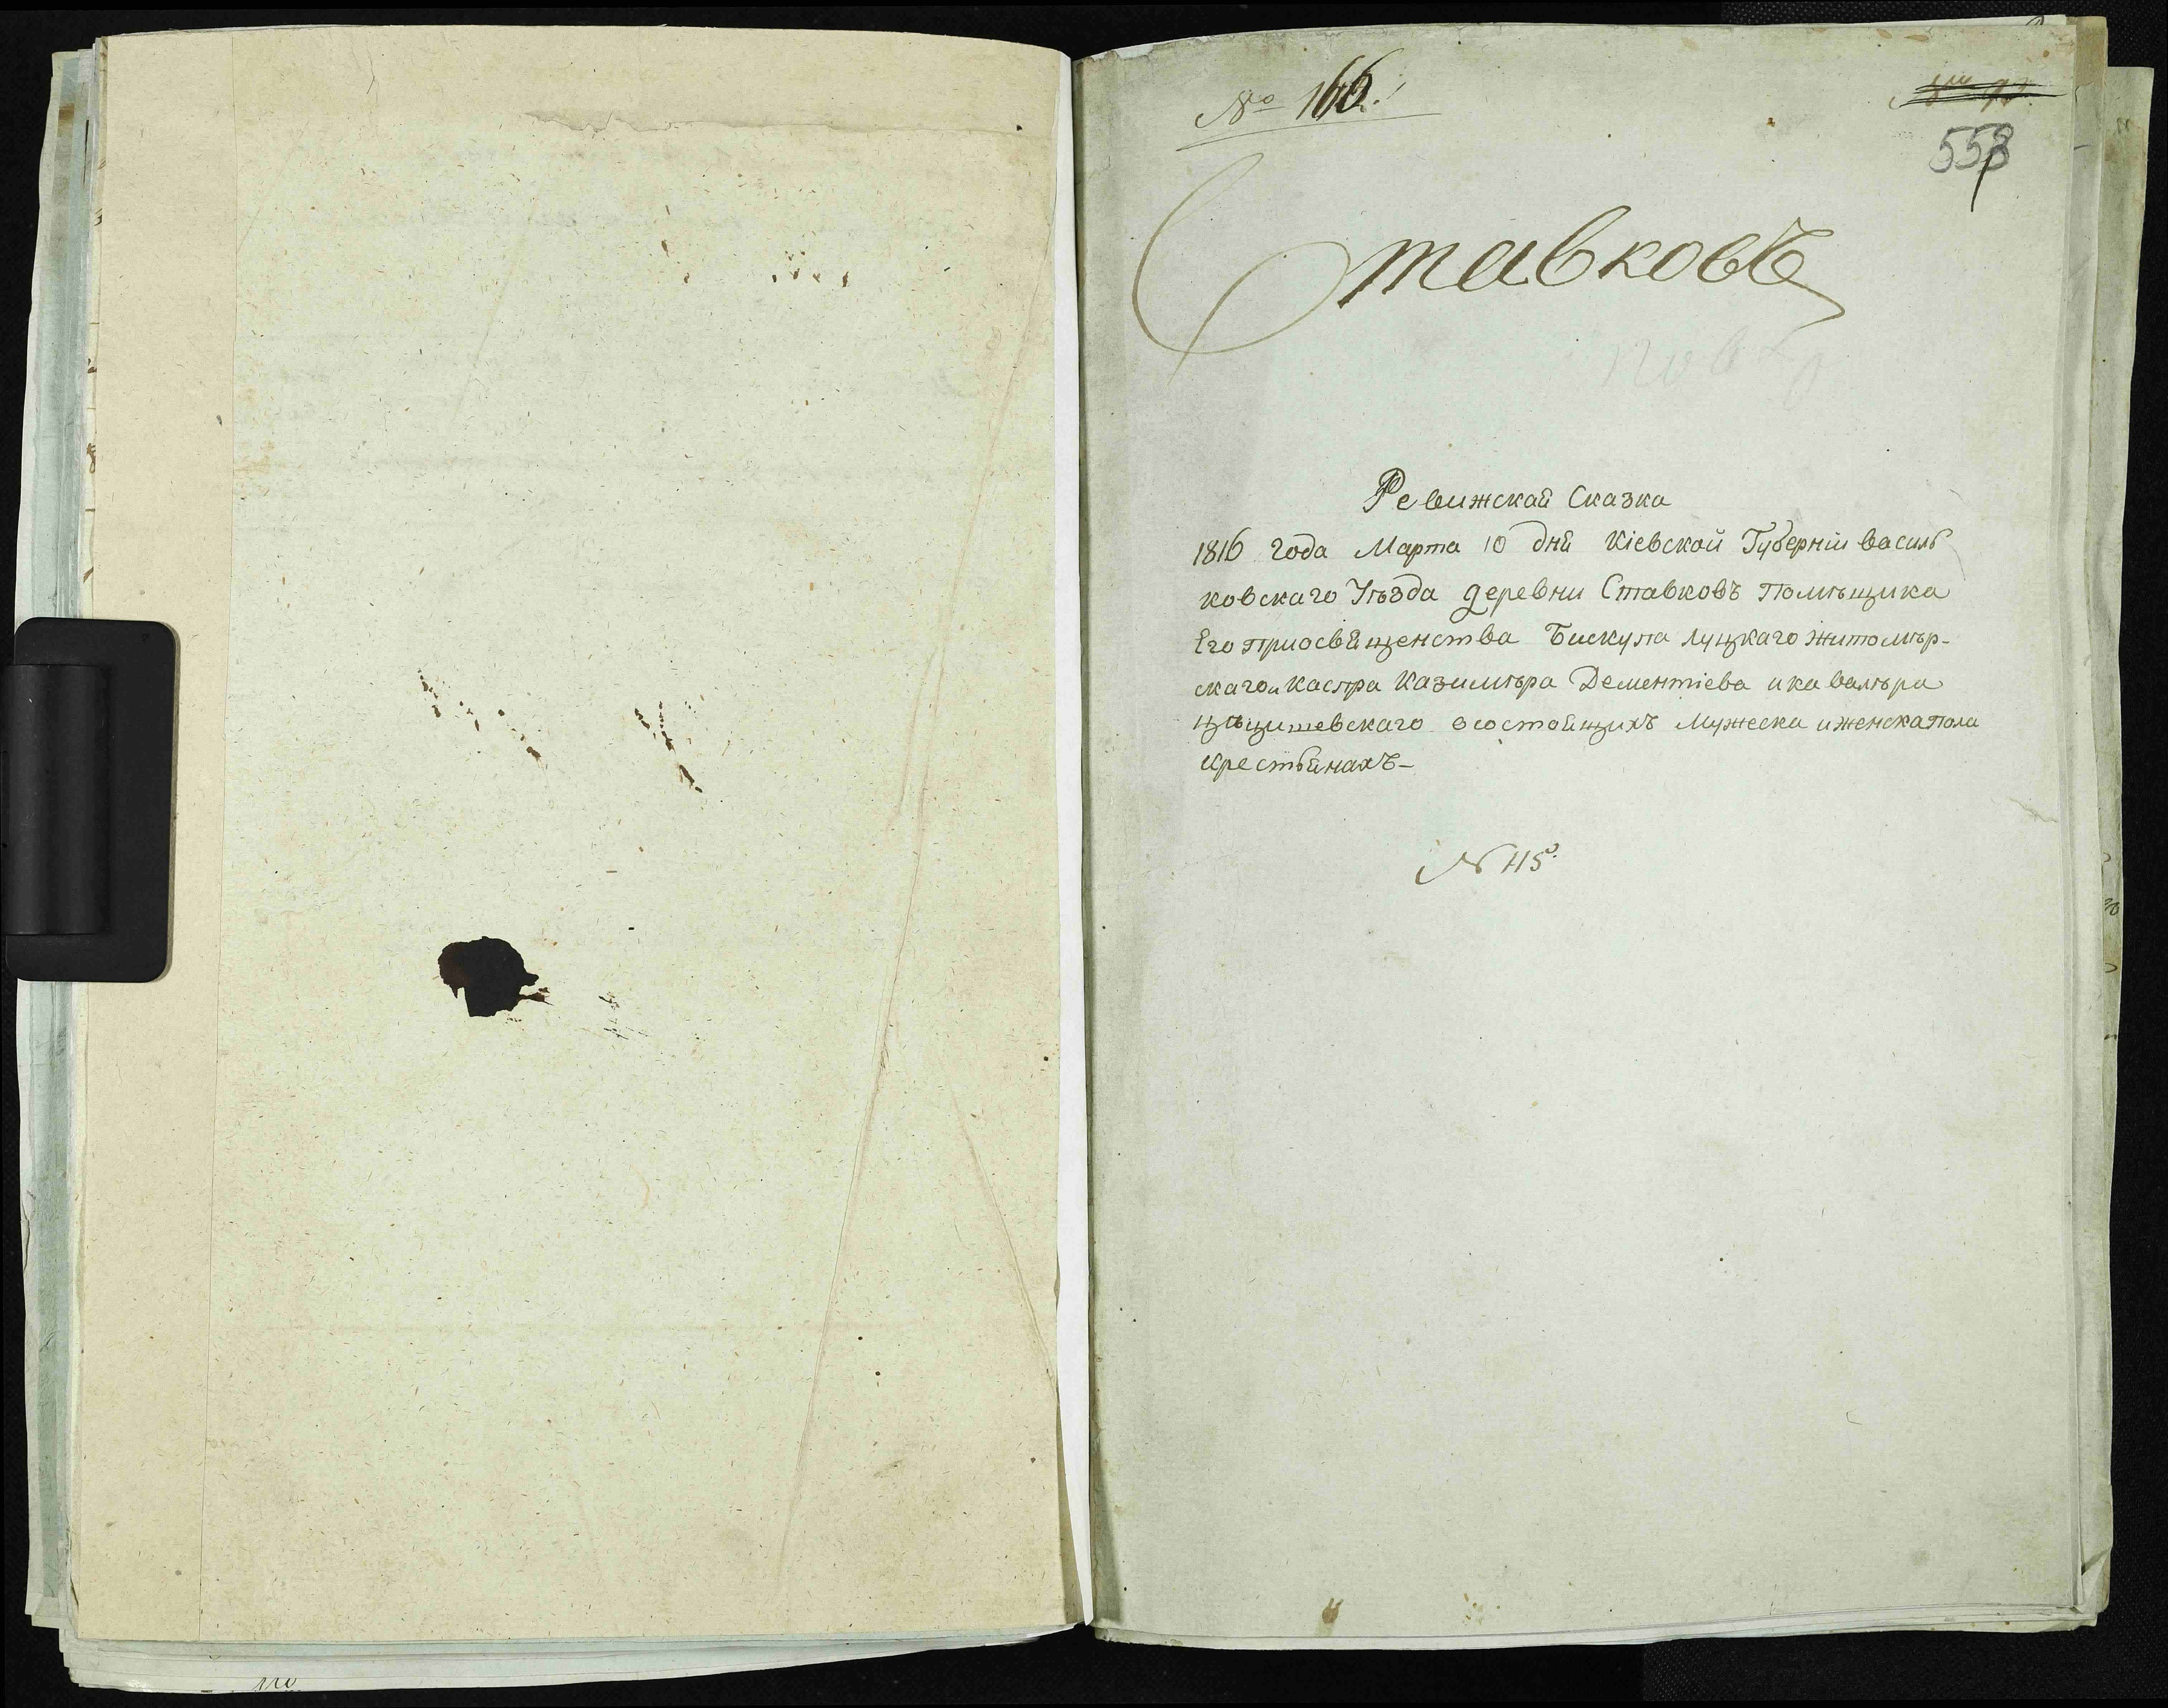 № 166.
558
Ставковъ
Ревижская Сказка
1816 года Марта 10 дня Кіевской Губерніи василь
ковскаго Уѣзда деревни Ставковъ Помѣщика
Его приосвященства Бискупа луцкаго житомѣр-
скаго и Каспра Казимѣра Дементіева и кавалѣра
Цѣцишевскаго о состоящихъ Мужеска и женска пола
крестьянахъ-
№ 115